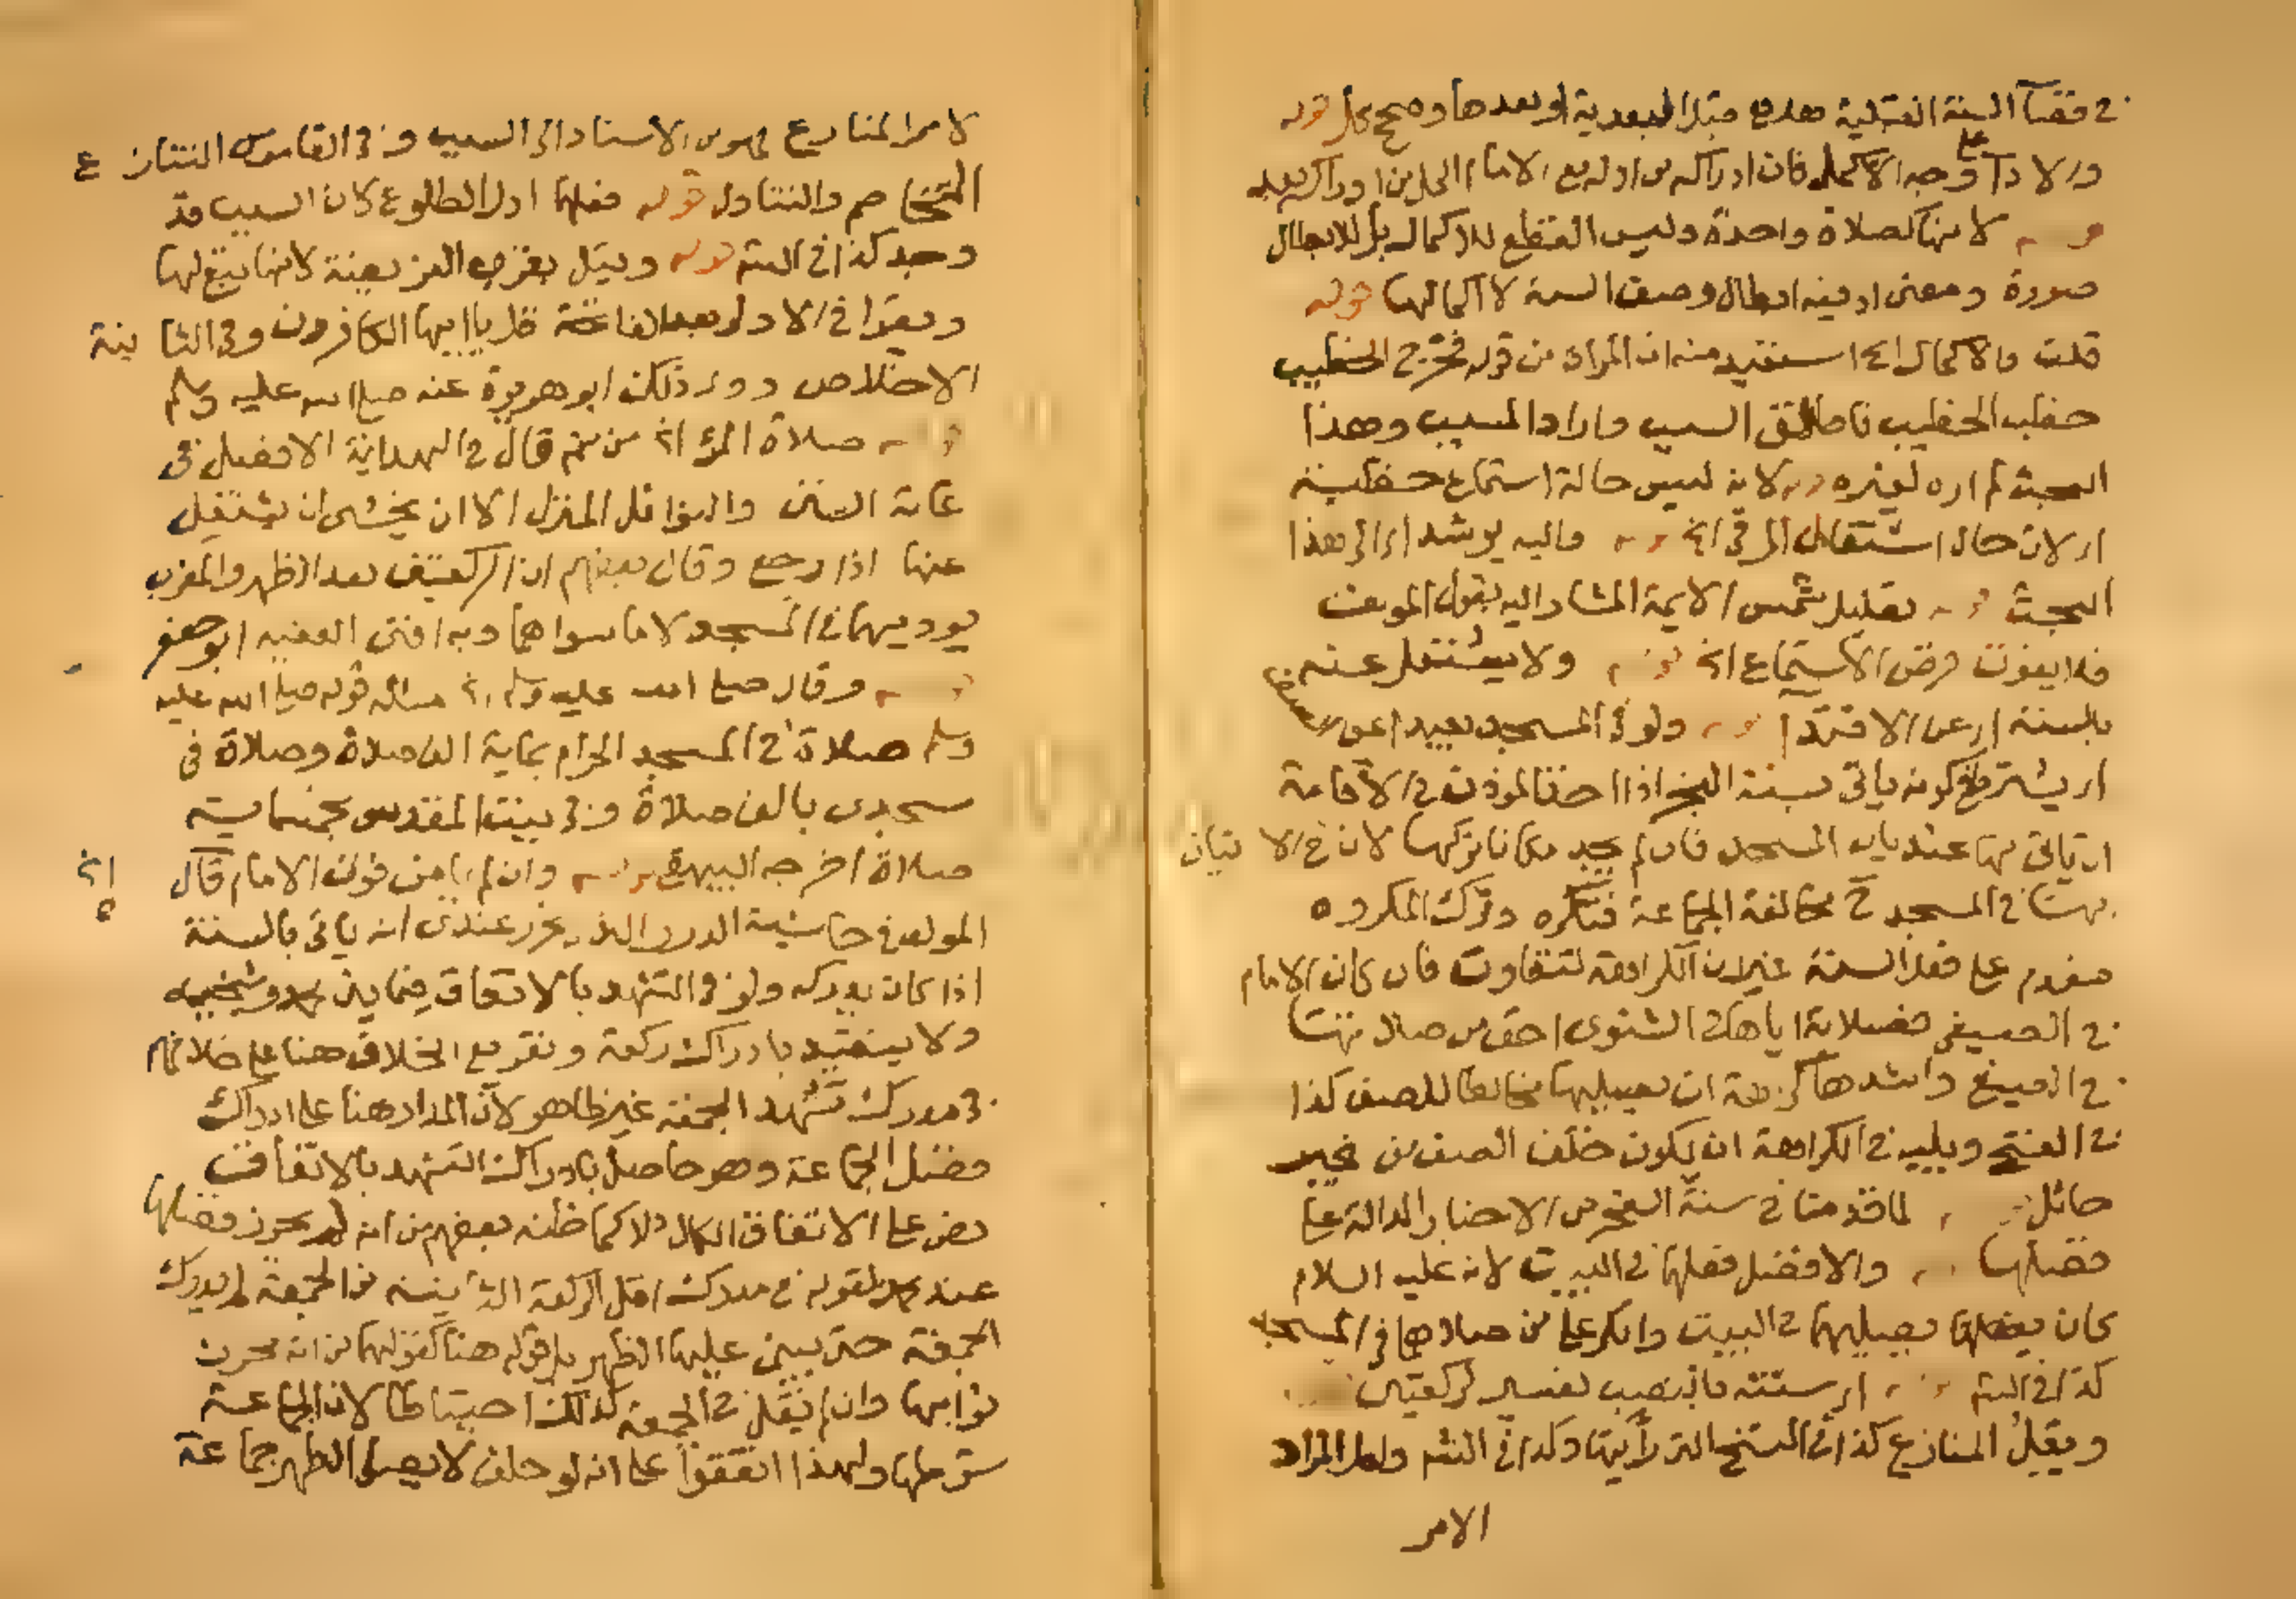 في قضآ السنة القبلية هل هو قبل البعدية او بعدها وصحح كل قوله
والادآ على وجه الاكمل فان ادراكه من اوله مع الامام
قوله لانها كصلاة واحدة وليس القطع للاكمال بل للابطال
صورة ومعنى او فيه ابطال وصف السنة لا اكمالها قوله
قلت والاكمال الخ استفيد منه ان المراد من قوله فخرج الخطيب
خطب الخطيب فاطلق السبب واراد المسبب وهذا
البحث لم اره لغيره قوله لانه ليس حالة استماع خطبته
اي لان حال اشتغال المرقى الخ قوله واليه يرشد اي الى هذا
البحث قوله تعليل شمس الايمة المشار اليه بقول المولف
فلا يفوت فرض الاستماع الخ قوله ولا يشتغل عنه
بالسنة اي عن الاقتدآ قوله ولو في المسجد بعيدا عن الصف
اي يشترط في كونه ياتى بسنة الفجر اذا اخذ الموذن في الاقامة
ان ياتى بها عند باب المسجد فان لم يجد مكانا تركها لان في الاتيان
بها في المسجد ح مخالفة الجماعة فتكره وترك المكروه
مقدم على فعل السنة غير ان الكراهة تتفاوت فان كان الامام
في الصيفى فصلاته اياها في الشتوى اخف من صلاتها
في الصيفى واشدها كراهة ان يصليها مخالطا للصف كذا
في الفتح ويليه في الكراهة ان يكون خلف الصف من غير
حائل قوله لما قدمنا في سنة الفجر من الاخبار الدالة على
فضلها قوله والافضل فعلها في البيت لانه عليه السلام
كان يصليها في البيت وانكر على من صلاها في المسجد
كذا في النهر قوله اي سنته بالنصب تفسير لركعتين
ويقبل المنازع كذا في النسخ التي رأيتها وكذا في النهر ولعل المراد
الامر
لامر المنازع فهو من الاسناد الى السبب وفى القاموس التنازع
التخاصم والتناول قوله فعلها اول الطلوع كان السبب قد
وجد كذا في النهر قوله وقيل بقرب الفريضة لانها تبع لها
ويقرا في الاولى بعد الفاتحة قل ياايها الكافرون وفى الثانية
الاخلاص روى ذلك ابو هريرة عنه صلى الله عليه وسلم
قوله صلاة المرء الخ من ثم قال في الهداية الافضل فى
عامة السنن والنوافل المنزل الا ان يخشى ان يشتغل
عنها اذا رجع وقال بعضهم ان الركعتين بعد الظهر والمغرب
يوديهما في المسجد لا ما سواهما وبه افتى الفقيه ابو جعفر
قوله وقال صلى الله عليه وسلم الخ مثاله قوله صلى الله عليه
وسلم صلاة في المسجد الحرام بماية الف صلاة وصلاة فى
مسجدى بالف صلاة وفى بيت المقدس بخمسماية
صلاة اخرجه البيهقى قوله وان لم يامن فوت الامام الخ قال
المولف في حاشية الدرر الذي تحرر عندى انه ياتى بالسنة
اذا كان يدركه ولو فى التشهد بالاتفاق فيما بين محمد وشيخيه
ولا يتقيد بادراك ركعة وتفريع الخلاف هنا على خلافهم
فى مدرك تشهد الجمعة غير ظاهر لان المدار هنا على ادراك
فضل الجماعة وهو حاصل بادراك التشهد بالاتفاق
نص على الاتفاق الكمال لا كما ظنه بعضهم من انه لم يحرز فضلها
عند محمد لقوله في مدرك اقل الركعة الثانية من الجمعة لم يدرك
الجمعة حتى يبنى عليها الظهر بل قوله هنا كقولهما من انه يحرز
ثوابها وان لم يقل في الجمعة كذلك احتياطا لان الجماعة
شرطها ولهذا اتفقوا على انه لو حلف لا يصلى الظهر جماعة